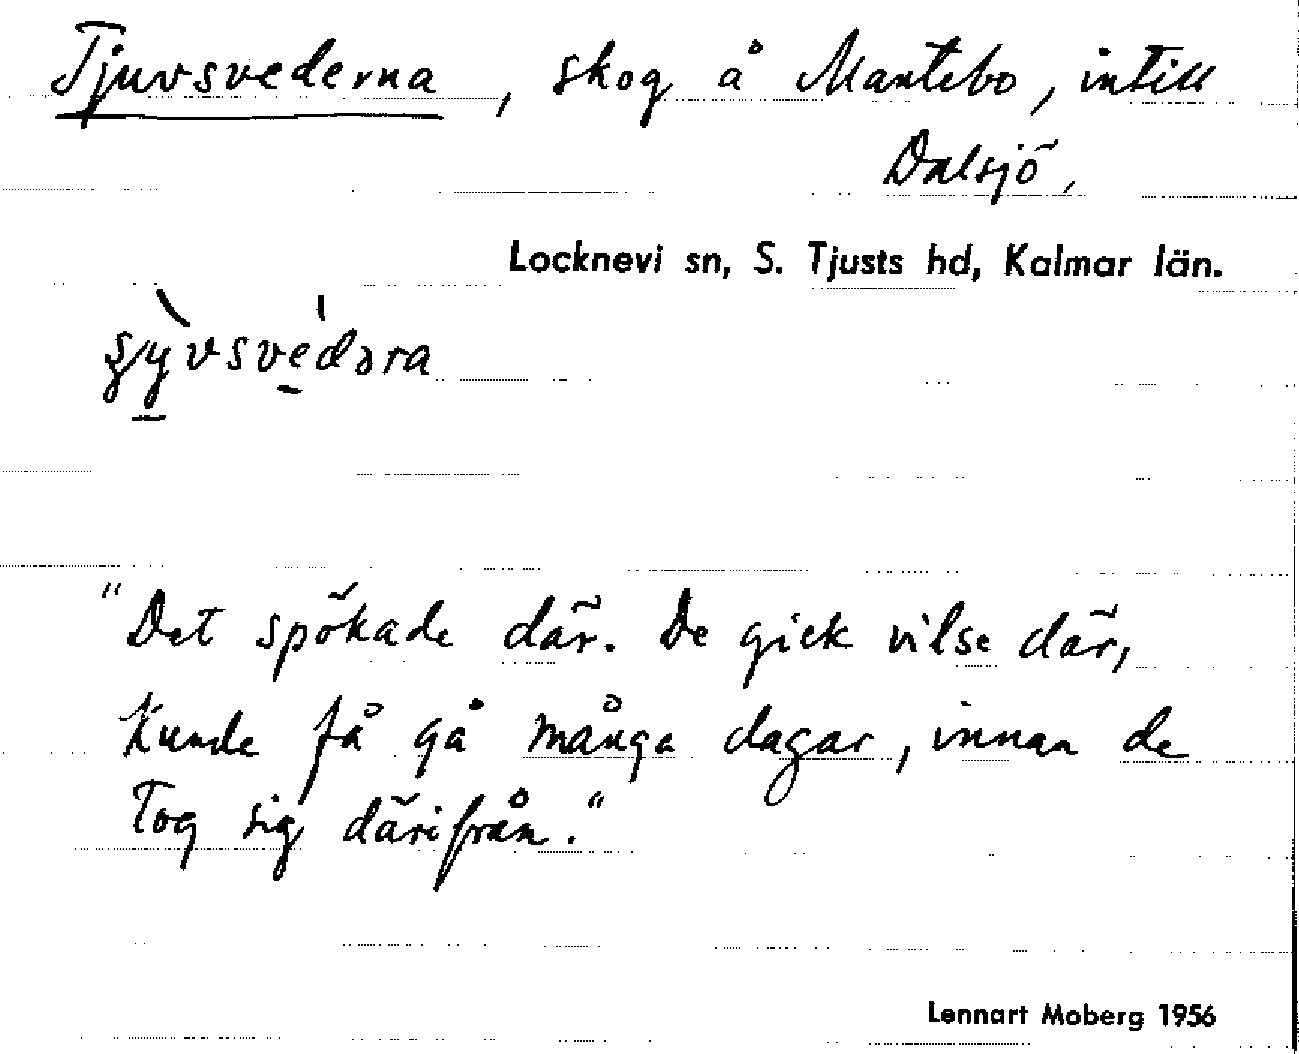 Tjuvsvederna, skog å Mantebo, intill
Dalsjö,
Locknevi sn, S. Tjusts hd, Kalmar län.
"Det spökade där. De gick vilse där,
kunde få gå många dagar, innan de
tog sig därifrån."
Lennart Moberg 1956